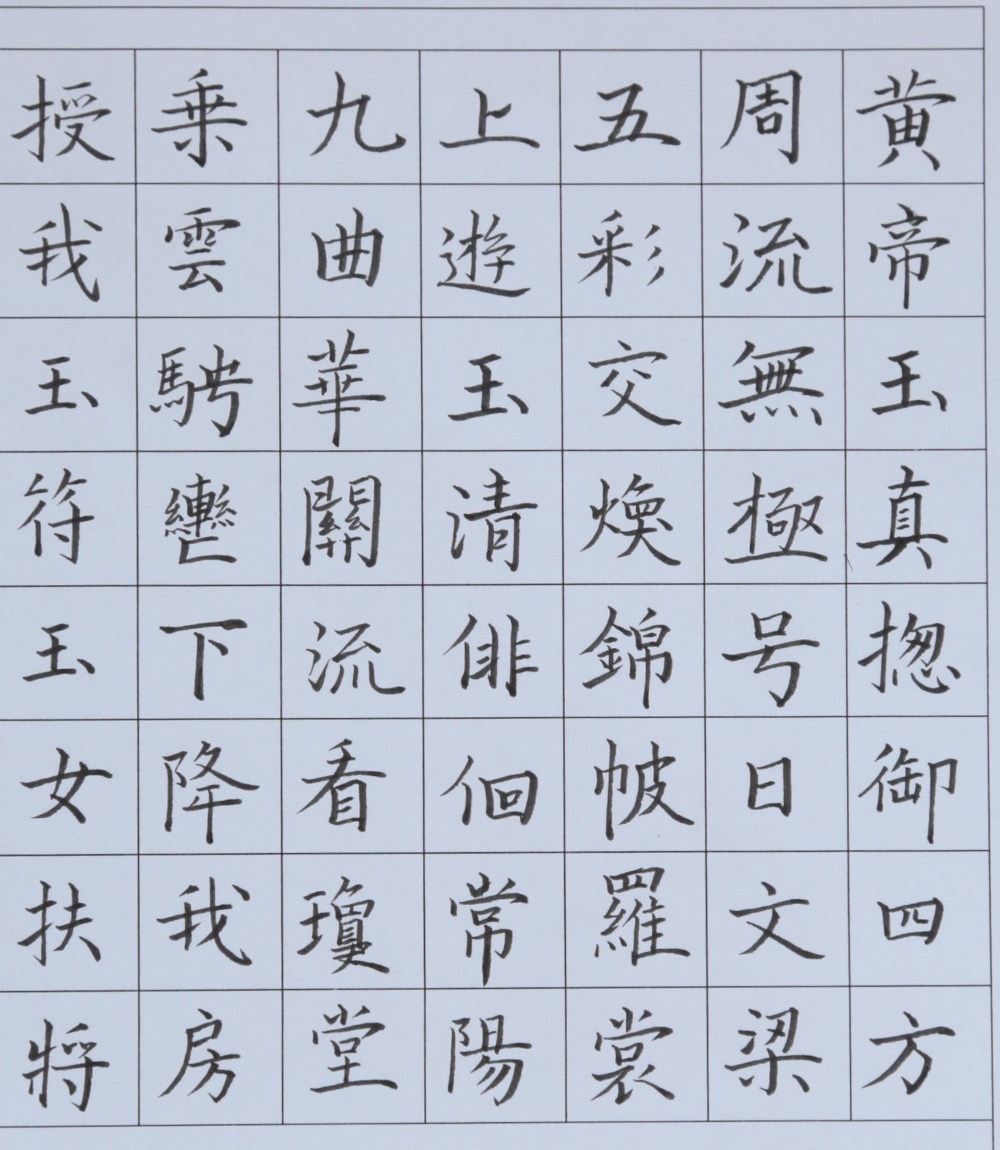 黄帝玉真揔御四方
周流無極号日文梁
五彩交煥錦帔羅裳
上遊玉清俳佪常陽
九曲華關流看瓊堂
乗雲騁轡下降我房
授我玉符玉女扶将